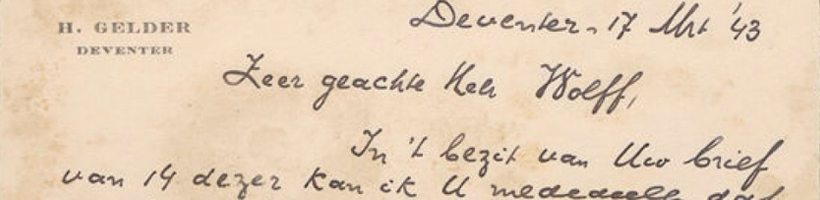 H. GELDER
DEVENTER
Deventer, 17 Mrt '43
Zeer geachte Heer Wolff,
In 't bezit van Uw brief
van 14 dezer kan ik U mededeelen dat